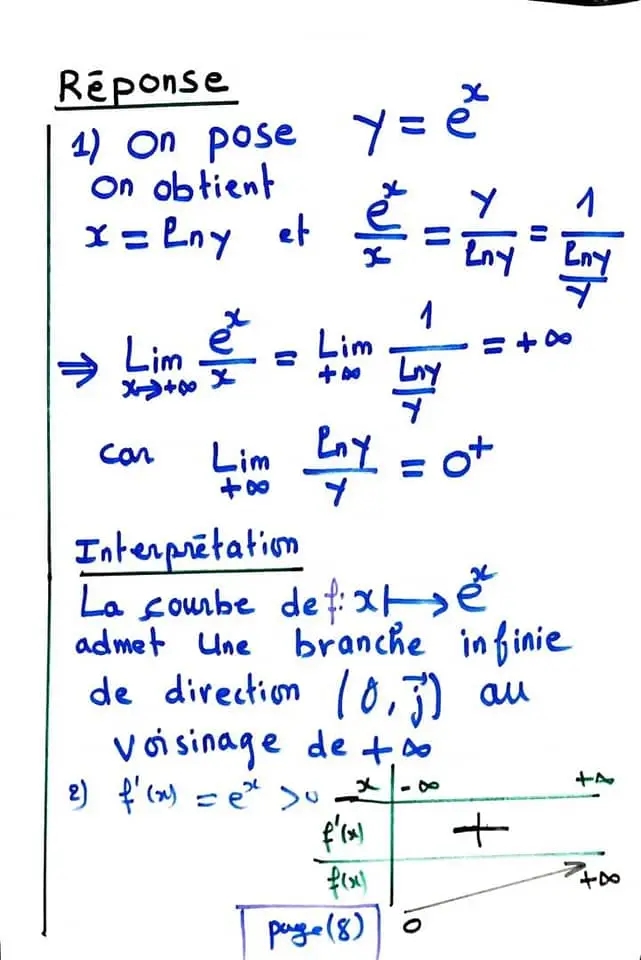 Réponse
1) On pose y = e^x
On obtient
x = ln y et e^x/x = y/ln y = 1/(ln y/y)
⇒ Lim x→+∞ e^x/x = Lim +∞ 1/(Ln y/y) = +∞
car Lim +∞ ln y/y = 0⁺
Interprétation
La courbe de f: x ↦ e^x
admet une branche infinie
de direction (0, j⃗) au
voisinage de +∞
2) f'(x) = e^x > 0
x -∞ +∞
f'(x) +
f(x) 0 +∞
page (8)